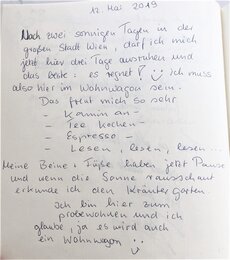 12. Mai 2019
Nach zwei sonnigen Tagen in der
großen Stadt Wien, darf ich mich
jetzt hier drei Tage ausruhen und
das beste: es regnet! Ich muss
also hier im Wohnwagen sein.
Das freut mich so sehr
- Kamin an -
- Tee kochen -
- Espresso -
- Lesen, lesen, lesen...
Meine Beine + Füße haben jetzt Pause
und wenn die Sonne rausschaut
erkunde ich den Kräutergarten.
Ich bin hier zum
probewohnen und ich
glaube, ja es wird auch
ein Wohnwagen